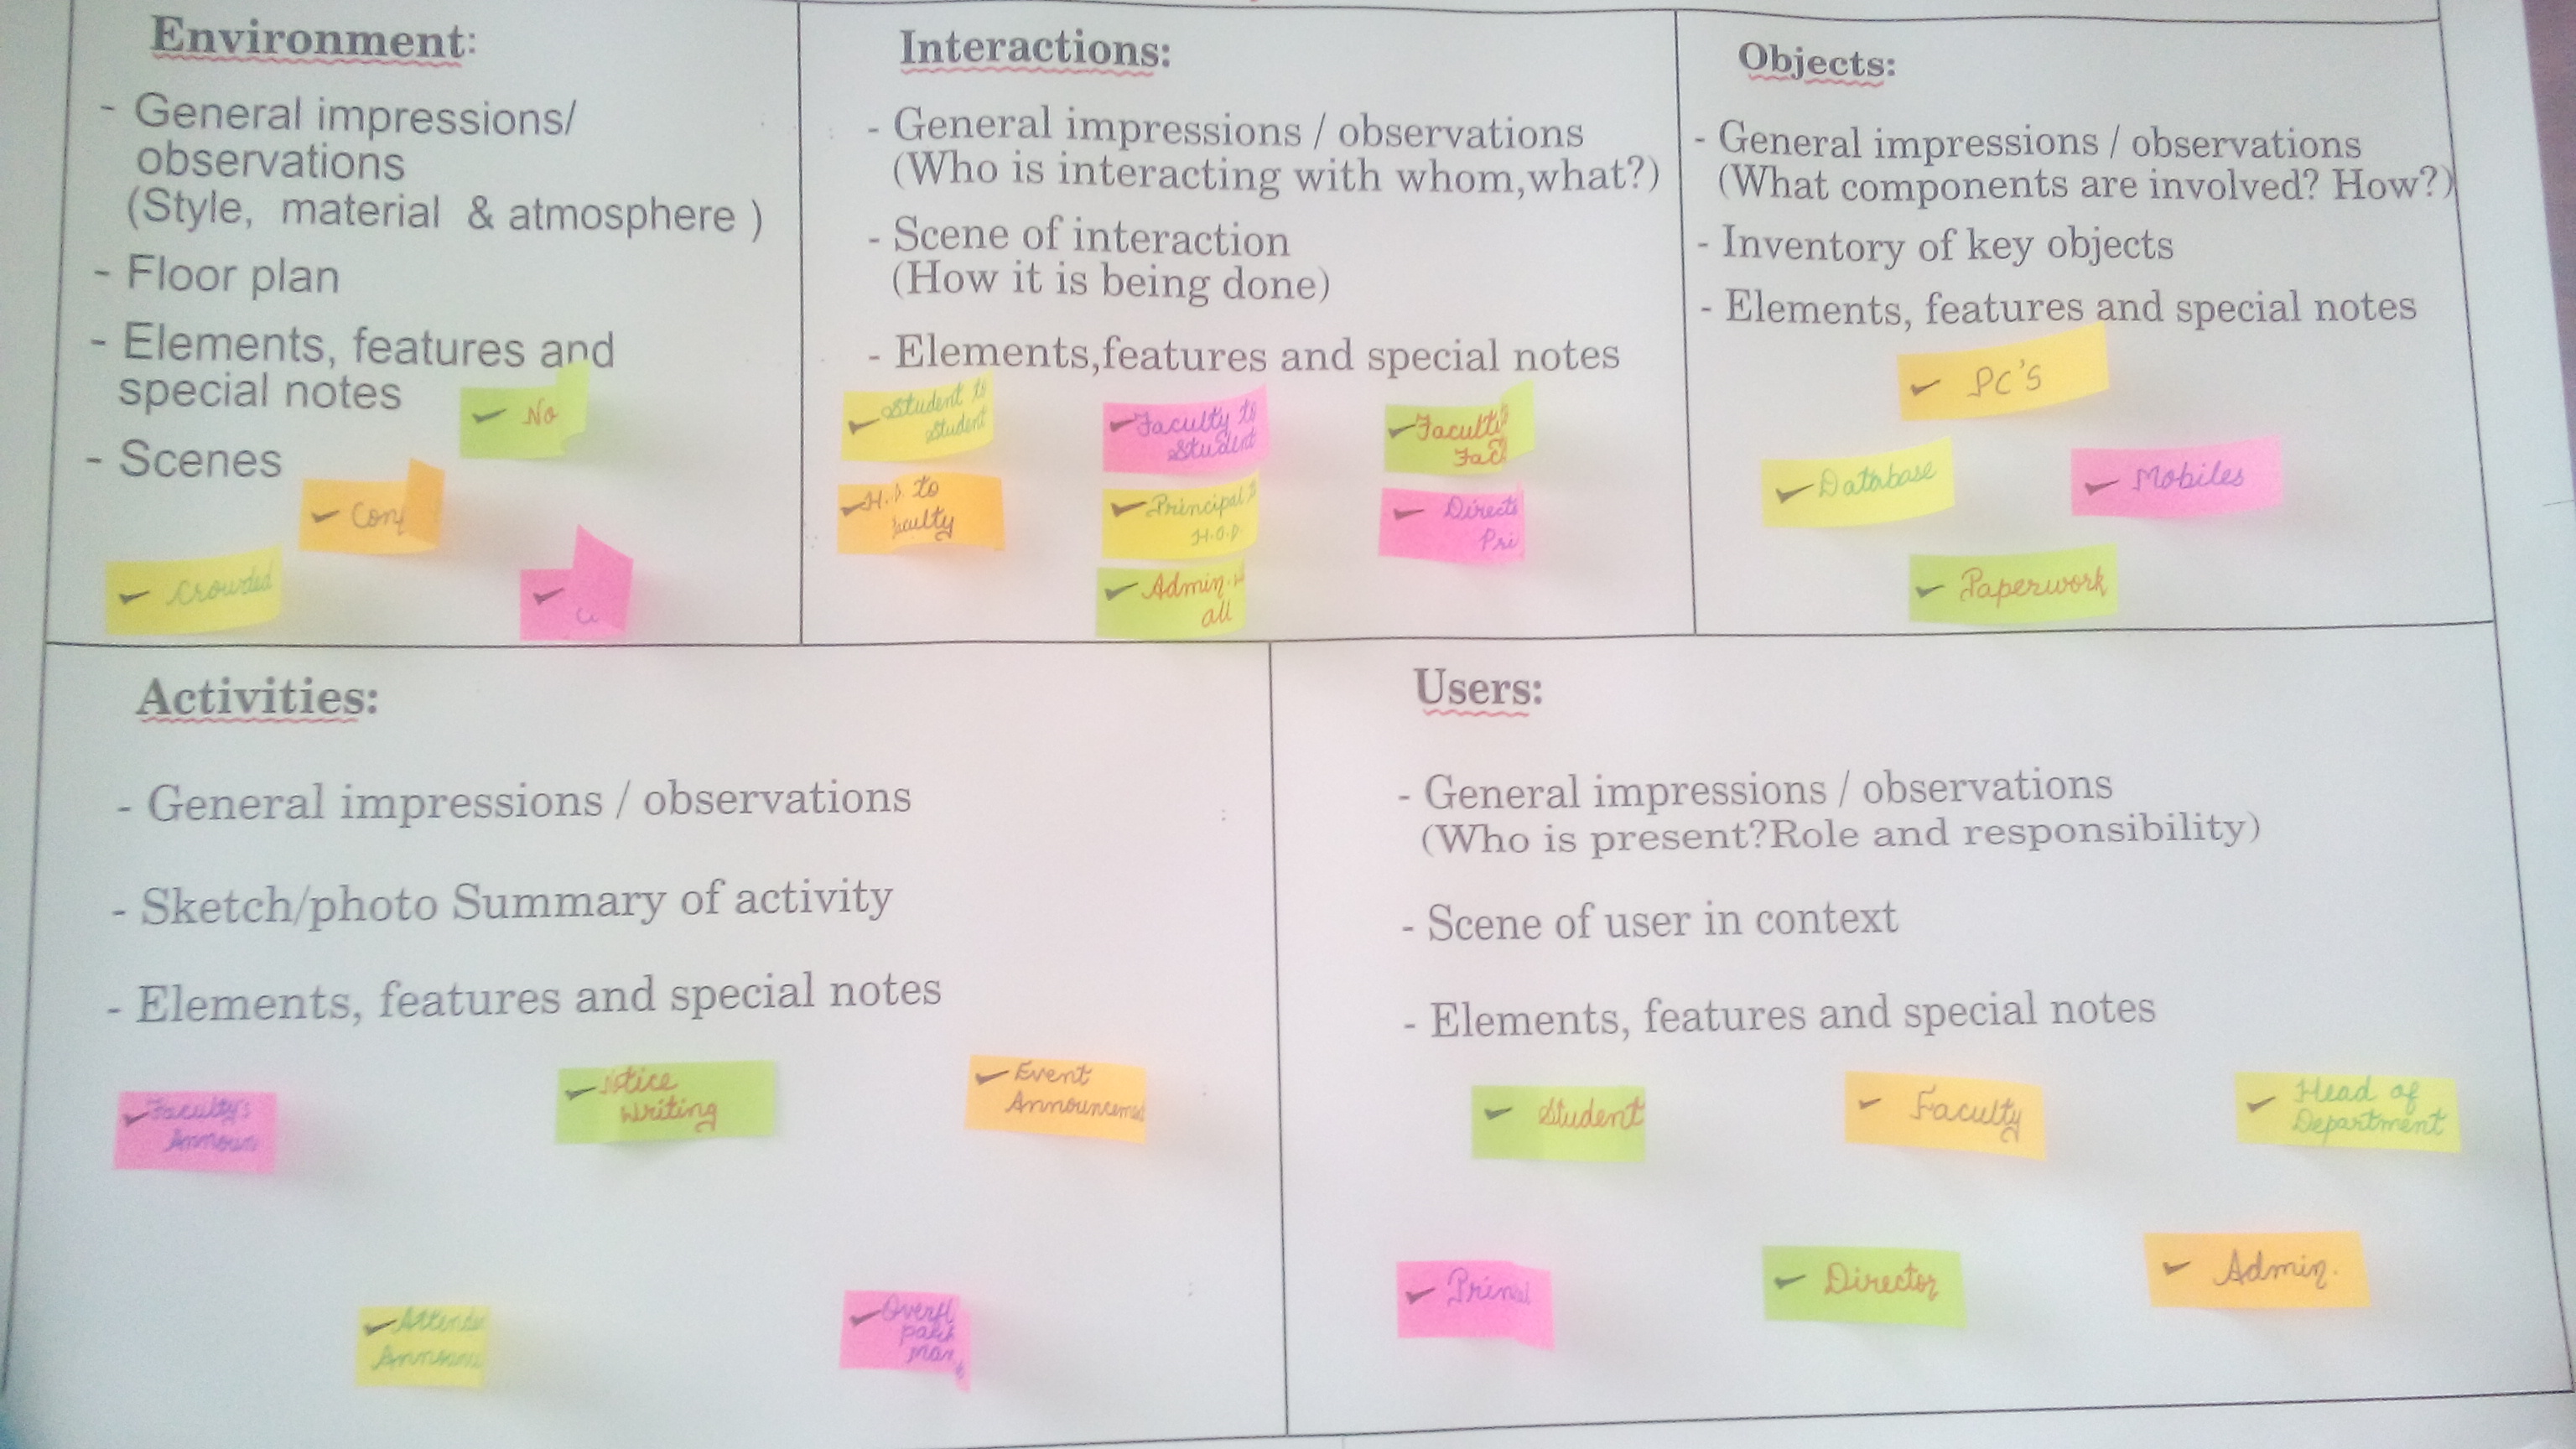 Environment:
- General impressions/
observations
(Style, material & atmosphere )
- Floor plan
- Elements, features and
special notes
- Scenes
No
Crowded
Interactions:
- General impressions / observations
(Who is interacting with whom,what?)
- Scene of interaction
(How it is being done)
- Elements,features and special notes
Student to
Student
Faculty to
Student
H.O.D to
Faculty
Principal to
H.O.D.
Admin. to
all
Objects:
- General impressions / observations
(What components are involved? How?)
- Inventory of key objects
- Elements, features and special notes
PC'S
Database
Mobiles
Paperwork
Activities:
- General impressions / observations
- Sketch/photo Summary of activity
- Elements, features and special notes
Faculty's
Announ
Notice
Writing
Event
Announcemen
Users:
- General impressions / observations
(Who is present?Role and responsibility)
- Scene of user in context
- Elements, features and special notes
Student
Faculty
Head of
Department
Director
Admin.